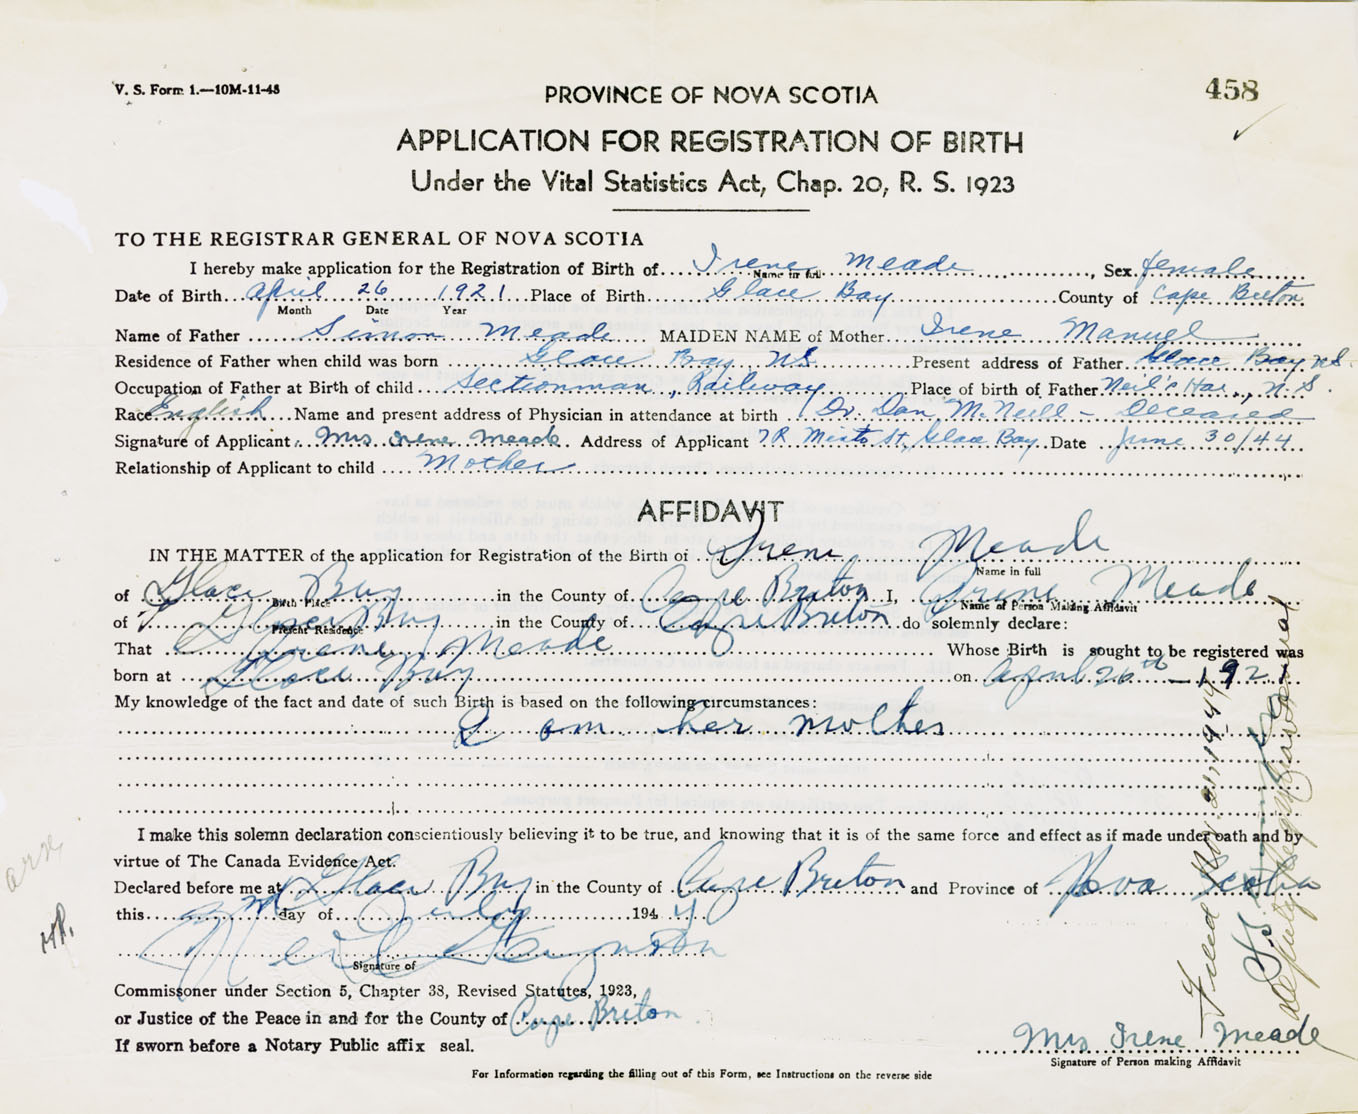 V. S. Form 1.—10M-11-43
458
PROVINCE OF NOVA SCOTIA
APPLICATION FOR REGISTRATION OF BIRTH
Under the Vital Statistics Act, Chap. 20, R. S. 1923
TO THE REGISTRAR GENERAL OF NOVA SCOTIA
I hereby make application for the Registration of Birth of Irene Meade, Sex female
Name in full
Date of Birth April 26 1921 Place of Birth Glace Bay County of Cape Breton
Month Date Year
Name of Father Simon Meade MAIDEN NAME of Mother Irene Manuel
Residence of Father when child was born Glace Bay N.S. Present address of Father Glace Bay N.S.
Occupation of Father at Birth of child Sectionman, Railway Place of birth of Father Neil's Har., N.S.
Race English Name and present address of Physician in attendance at birth Dr. Dan McNeill - Deceased
Signature of Applicant Mrs. Irene Meade Address of Applicant 7R Minto St, Glace Bay Date June 30/44
Relationship of Applicant to child Mother
AFFIDAVIT
IN THE MATTER of the application for Registration of the Birth of Irene Meade
Name in full
of Glace Bay in the County of Cape Breton I, Irene Meade
Birth Place Name of Person Making Affidavit
of Glace Bay in the County of Cape Breton do solemnly declare:
Present Residence
That Irene Meade Whose Birth is sought to be registered was
born at Glace Bay on April 26th - 1921
My knowledge of the fact and date of such Birth is based on the following circumstances:
I am her mother
I make this solemn declaration conscientiously believing it to be true, and knowing that it is of the same force and effect as if made under oath and by
virtue of The Canada Evidence Act.
Declared before me at Glace Bay in the County of Cape Breton and Province of Nova Scotia
this day of July 1944
Signature of
Commissoner under Section 5, Chapter 38, Revised Statutes, 1923,
or Justice of the Peace in and for the County of Cape Breton
If sworn before a Notary Public affix seal.
Mrs Irene Meade
Signature of Person making Affidavit
For Information regarding the filling out of this Form, see Instructions on the reverse side
Filed Nov. 21, 1944
Deputy Registrar General